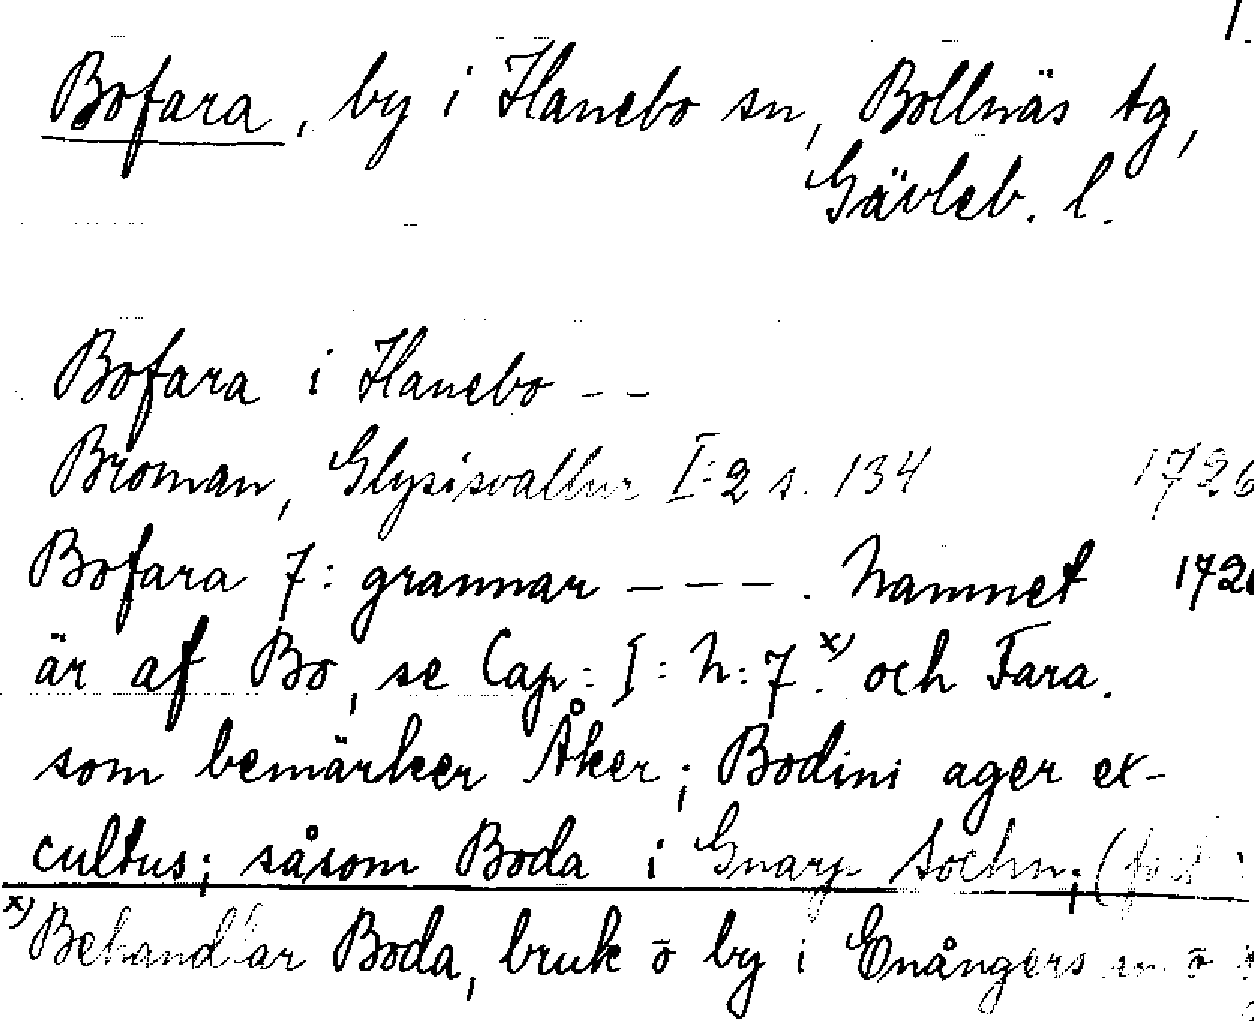 Bofara, by i Hanebo sn, Bollnäs tg,
Gävleb. l.
Bofara i Hanebo - -
Broman, Glysisvallur I:2 s. 134 1726
Bofara 7: grannar - - - . Namnet
är af Bo, se Cap: I: N: 7.x) och Fara.
som bemärker Åker; Bodini ager ex-
cultus; såsom Boda i Gnarp Sochn; (
x) Behandlar Boda, bruk o by i Enångers sn o